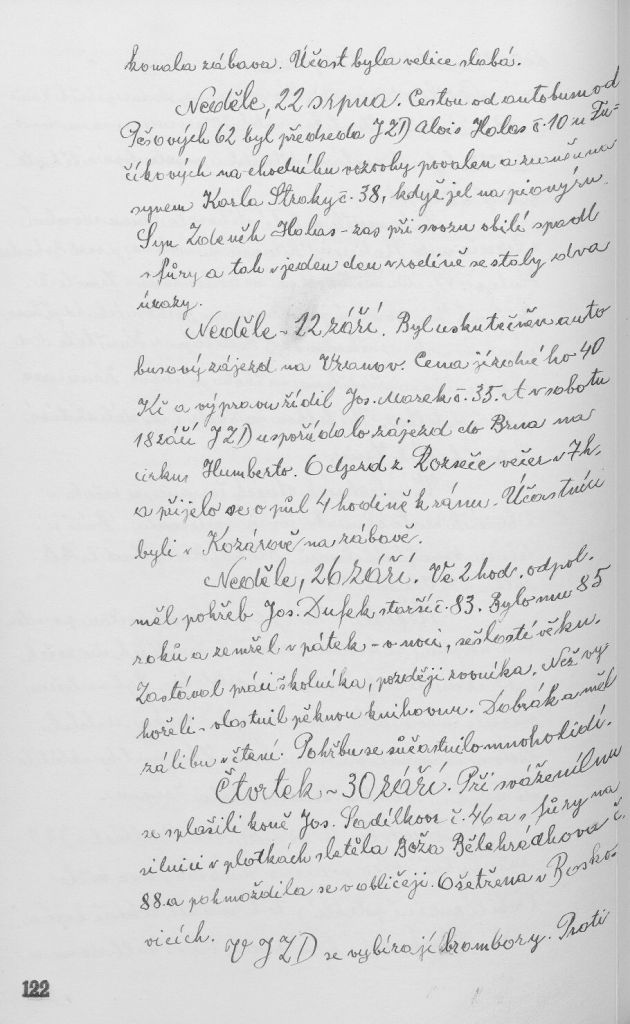 konala zábava. Účast byla velice slabá.
Neděle, 22 srpna. Cestou od autobusu od
Pešových 62 byl předseda JZD Alois Halas č. 10 u Fu-
číkových na chodníku vozovky povalen a zraněn
synem Karla Straky č. 38, když jel na pionýru.
Syn Zdeněk Halas - zas při svozu obilí spadl
s fůry a tak v jeden den v rodině se staly dva
úrazy.
Neděle - 12 září. Byl uskutečněn auto
busový zájezd na Vranov. Cena jízdného 40
Kč a výpravu řídil Jos. Marek č. 35. A v sobotu
18 září JZD uspořádalo zájezd do Brna na
cirkus Humberto. Odjezd z Rozseče večer v 7 h.
a přijelo se o půl 4 hodině k ránu. Účastníci
byli v Kozárově na zábavě.
Neděle, 26 září. Ve 2 hod. odpol.
měl pohřeb Jos. Dufek starší č. 83. Bylo mu 85
roků a zemřel v pátek - v noci, sešlostí věku.
Zastával práci školníka, později Než vy
hořeli - vlastnil pěknou knihovnu. Dobrák a měl
zálibu v čtení. Pohřbu se súčastnilo mnoho lidí.
Čtvrtek - 30 září. Při svážení lnu
se splašili koně Jos. Sedílkovi č. 46 a s fůry na
silnici v plotkách sletěla Boža Bělehrádkova č.
88. a pohmoždila se v obličeji. Ošetřena v Bosko-
vicích.
V JZD se vybírají brambory. Proti
122